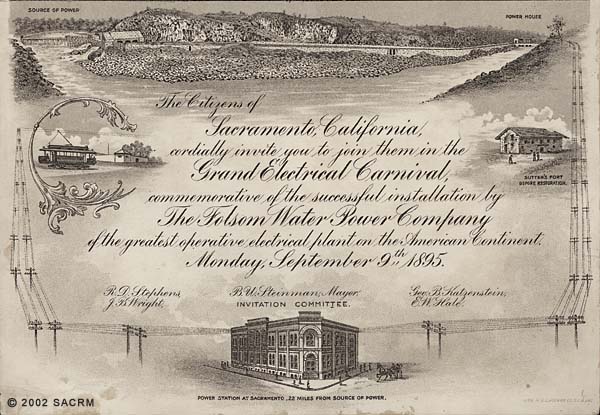 SOURCE OF POWER
POWER HOUSE
The Citizens of
Sacramento, California,
cordially invite you to join them in the
Grand Electrical Carnival,
commemorative of the successful installation by
The Folsom Water Power Company
of the greatest operative electrical plant on the American Continent.
Monday, September 9th 1895.
SUTTER'S FORT
BEFORE RESTORATION.
R.D. Stephens,
J.B. Wright,
B.U. Steinman, Mayor.
INVITATION COMMITTEE.
Geo. B. Katzenstein,
E.W. Hale.
POWER STATION AT SACRAMENTO, 22 MILES FROM SOURCE OF POWER.
© 2002 SACRM